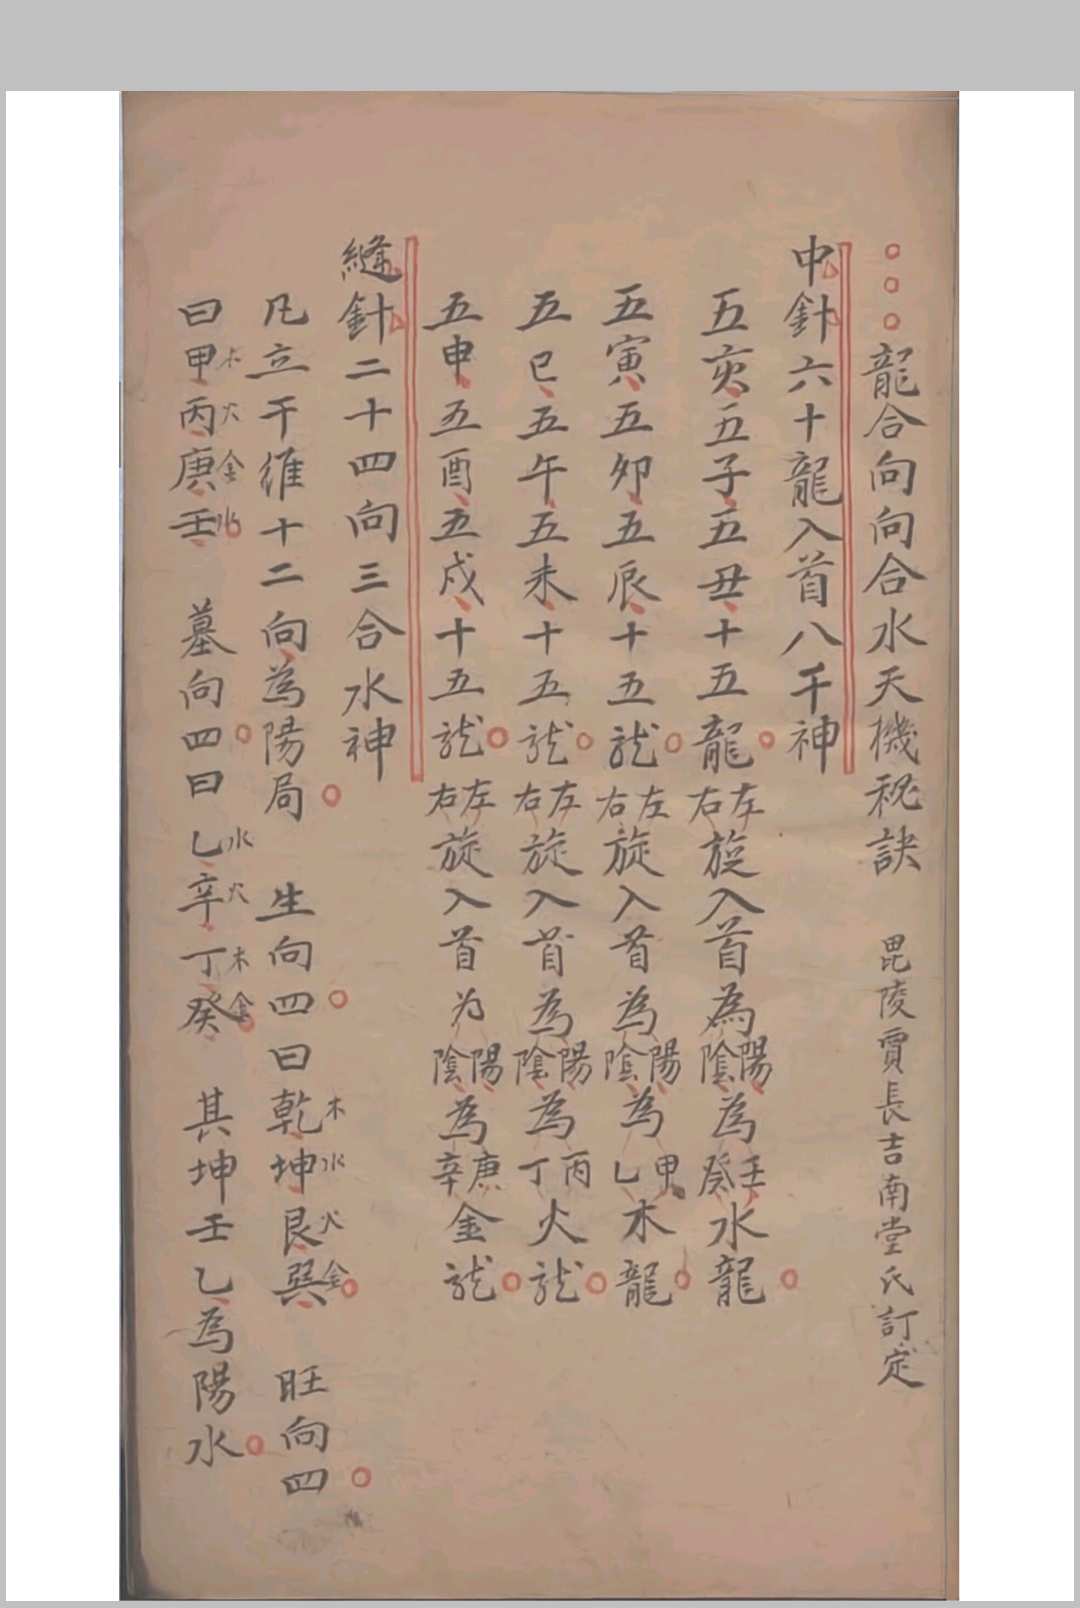 龍合向向合水天機秘訣 毘陵賈長吉南堂氏訂定
中針六十龍入首八干神
五亥五子五丑十五龍左右旋入首為陽陰為壬癸水龍
五寅五卯五辰十五龍左右旋入首為陽陰為甲乙木龍
五巳五午五未十五龍左右旋入首為陽陰為丙丁火龍
五申五酉五戌十五龍左右旋入首为陽陰為庚辛金龍
縫針二十四向三合水神
凡立干維十二向為陽局 生向四曰乾木坤水艮火巽金 旺向四
曰甲木丙火庚金壬水 墓向四曰乙水辛火丁木癸金 其坤壬乙為陽水